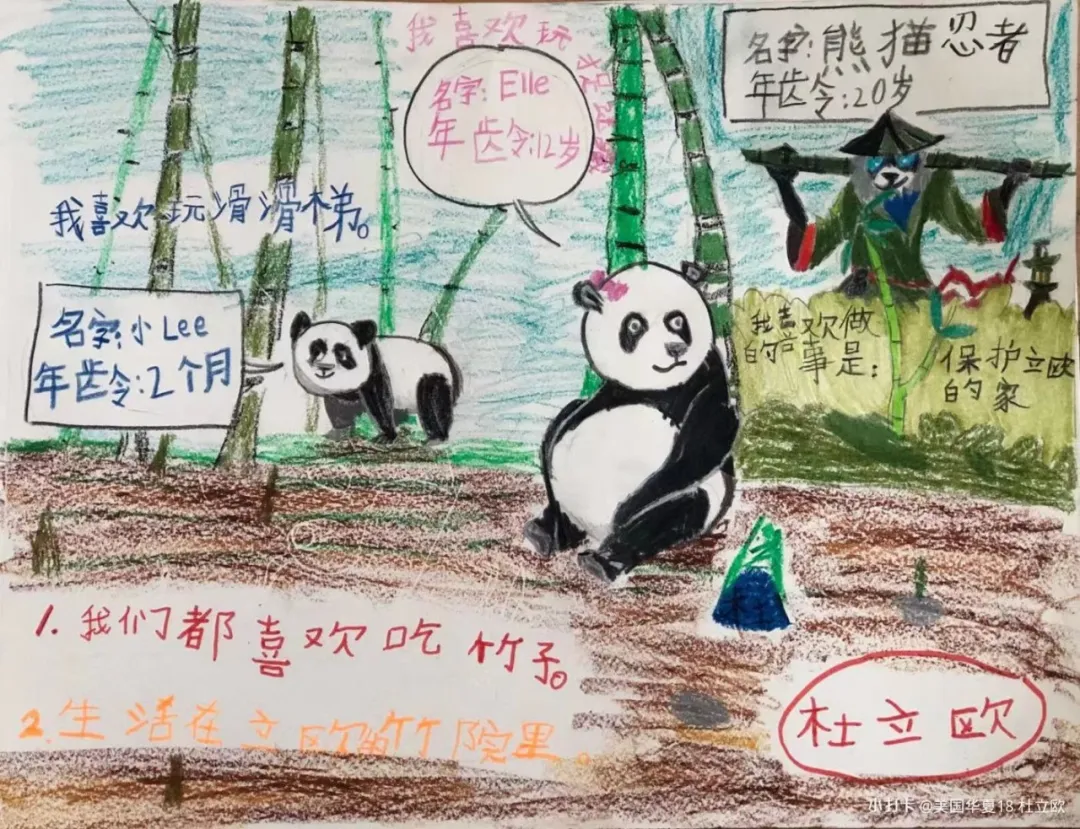 我喜欢玩
名字: Elle
年龄:12岁
名字:熊猫忍者
年龄:20岁
我喜欢玩滑滑梯。
名字:小Lee
年龄:2个月
我喜欢做
的事是:
保护立欧
的家
1.我们都喜欢吃竹子。
2.生活在立欧的竹院里。
杜立欧
小打卡@美国华夏18.杜立欧